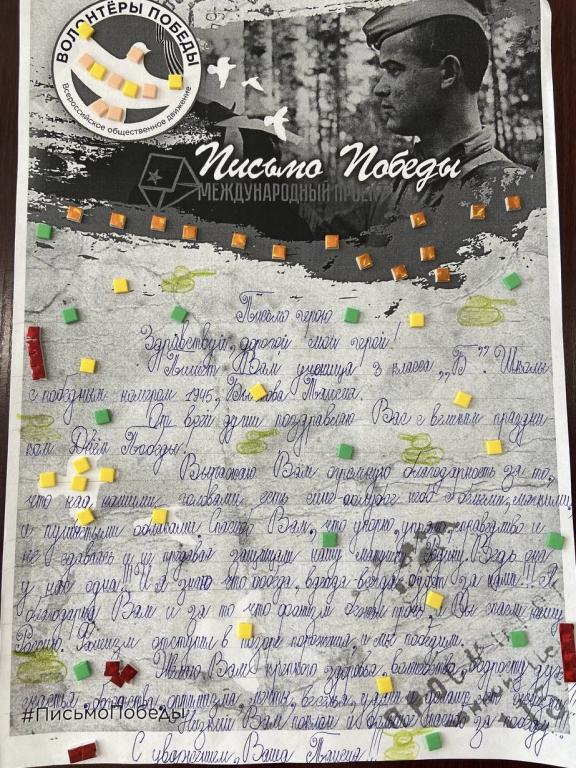 ВОЛОНТЁРЫ ПОБЕДЫ
Всероссийское общественное движение
Письмо Победы
МЕЖДУНАРОДНЫЙ ПРОЕКТ
Письмо герою
Здравствуй, дорогой мой герой!
Пишет Вам ученица 3 класса „Б". Школы
с победным номером 1945,
От всей души поздравляю Вас с великим праздни
ком Днём Победы!
Выражаю Вам огромную благодарность за то,
что над нашими головами есть небо с белыми, мягкими
и пушистыми облаками. Спасибо Вам, что упорно, и
не сдаваясь и не предавая защищали нашу Ведь она
у нас одна!! И я знаю что победа, всегда будет за нами!! Я
благодарна Вам и за то что фашизм и Вы спасли нашу
Россию. Фашизм отступил в позоре поражения, и мы победили.
Желаю Вам крепкого здоровья, бодрости духа
счастья, оптимизма,
#ПисьмоПобеды
Низкий Вам поклон и за победу
С уважением, Ваша